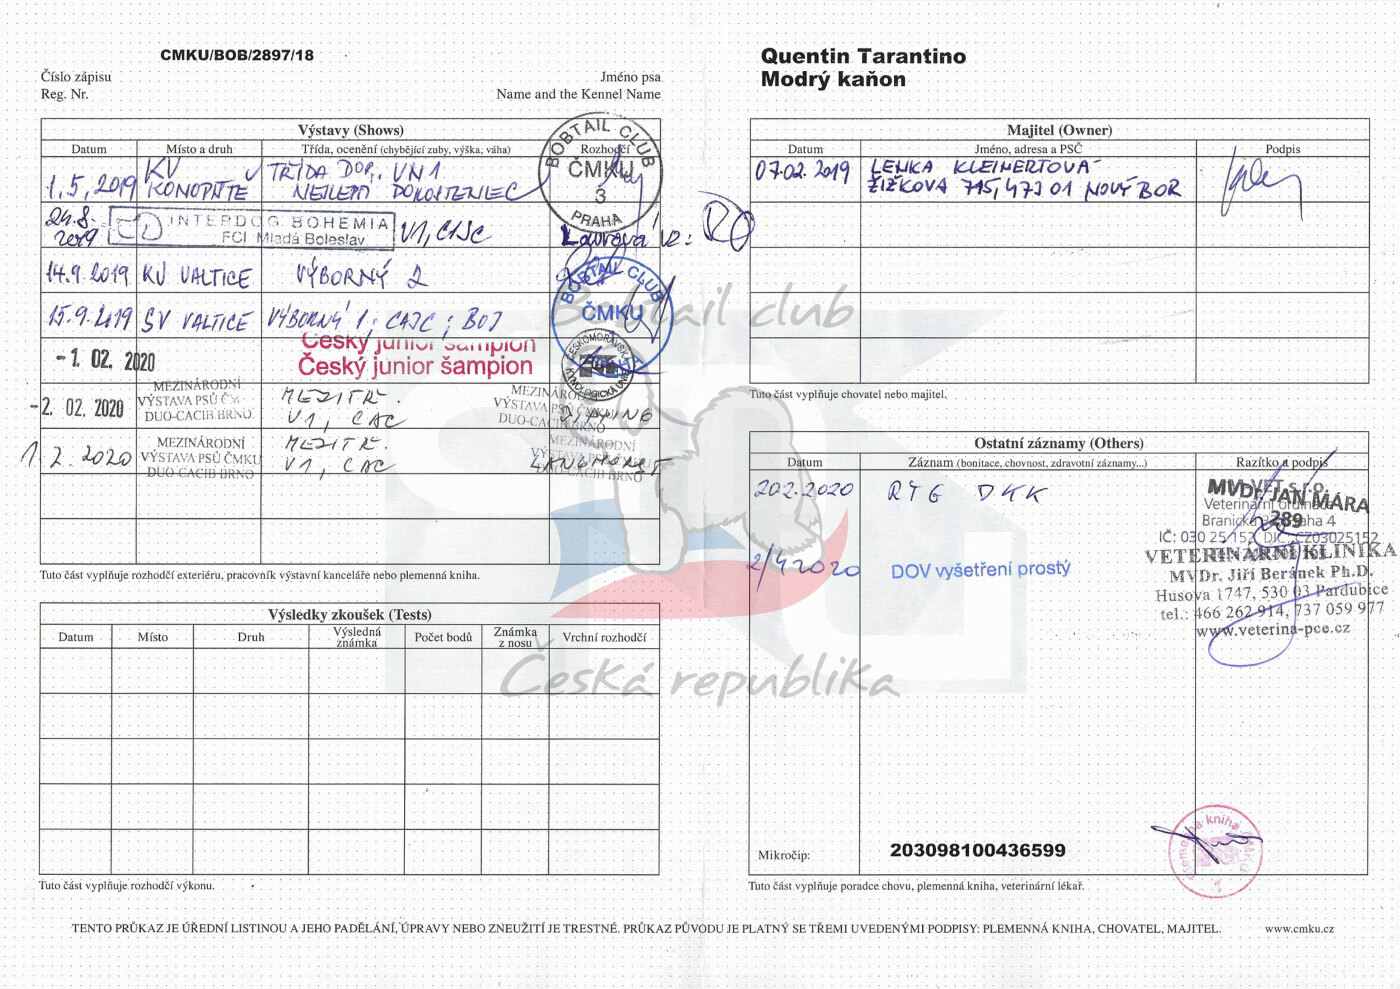 CMKU/BOB/2897/18
Číslo zápisu
Reg. Nr.
Jméno psa
Name and the Kennel Name
Výstavy (Shows)
Datum Místo a druh Třída, ocenění (chybějící zuby, výška, váha) Rozhodčí
1.5.2019 KV KONOPIŠTE TŘÍDA DOR., VN1
NEJLEPŠÍ DOROSTENEC
BOBTAIL CLUB
ČMKU
3
PRAHA
24.8.
2019 INTERDOG BOHEMIA
FCI Mladá Boleslav V1, CAJC
14.9.2019 KV VALTICE VÝBORNÝ 2
BOBTAIL CLUB
ČMKU
15.9.2019 SV VALTICE VÝBORNÝ 1, CAJC, BOJ
Český junior šampion
-1. 02. 2020 Český junior šampion
ČESKOMORAVSKÁ
KYNOLOGICKÁ UNIE
-2. 02. 2020 MEZINÁRODNÍ
VÝSTAVA PSŮ
DUO-CACIB BRNO
MEZITŘ.
V1, CAC
MEZINÁRODNÍ
VÝSTAVA PSŮ ČMKU
DUO-CACIB BRNO
1.2.2020 MEZINÁRODNÍ
VÝSTAVA PSŮ ČMKU
DUO-CACIB BRNO
MEZITŘ.
V1, CAC
MEZINÁRODNÍ
VÝSTAVA PSŮ ČMKU
DUO-CACIB BRNO
LANGHORST
Tuto část vyplňuje rozhodčí exteriéru, pracovník výstavní kanceláře nebo plemenná kniha.
Výsledky zkoušek (Tests)
Datum Místo Druh Výsledná známka Počet bodů Známka z nosu Vrchní rozhodčí
Tuto část vyplňuje rozhodčí výkonu.
Quentin Tarantino
Modrý kaňon
Majitel (Owner)
Datum Jméno, adresa a PSČ Podpis
07.02.2019 LENKA KLEINERTOVÁ
ŽIŽKOVA 715, 473 01 NOVÝ BOR
Tuto část vyplňuje chovatel nebo majitel.
Ostatní záznamy (Others)
Datum Záznam (bonitace, chovnost, zdravotní záznamy...) Razítko a podpis
20.2.2020 RTG DKK
MVDr. JAN MÁRA
289
Veterinární ordinace
IČ: 030 25 152 DIČ: CZ03025152
2/4 2020 DOV vyšetření prostý
VETERINÁRNÍ KLINIKA
MVDr. Jiří Beránek Ph.D.
Husova 1747, 530 03 Pardubice
tel.: 466 262 914, 737 059 977
www.veterina-pce.cz
Mikročip: 203098100436599
Plemenná kniha ČMKU
1
Tuto část vyplňuje poradce chovu, plemenná kniha, veterinární lékař.
Bobtail club
Česká republika
TENTO PRŮKAZ JE ÚŘEDNÍ LISTINOU A JEHO PADĚLÁNÍ, ÚPRAVY NEBO ZNEUŽITÍ JE TRESTNÉ. PRŮKAZ PŮVODU JE PLATNÝ SE TŘEMI UVEDENÝMI PODPISY: PLEMENNÁ KNIHA, CHOVATEL, MAJITEL. www.cmku.cz